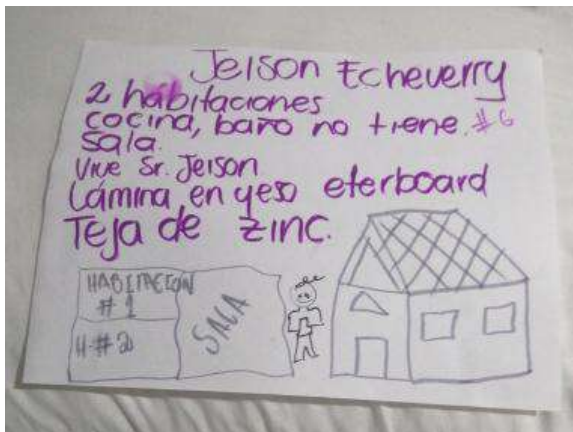 Jeison Echeverry
2 habitaciones
cocina, baño no tiene. #6
Sala.
Vive Sr. Jeison
Lámina en yeso eterboard
Teja de zinc.
HABITACION
# 1
H-# 2
SALA